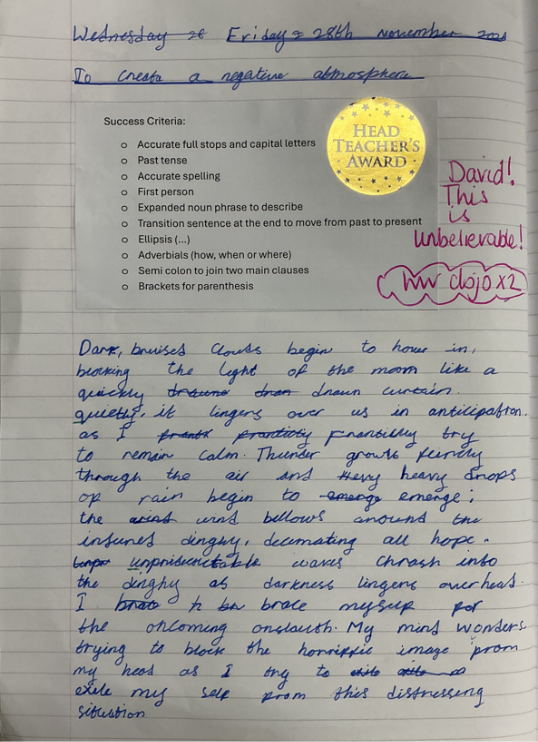 Wednesday 26 Friday 28th November 2025
To create a negative atmosphere
Success Criteria:
o Accurate full stops and capital letters
o Past tense
o Accurate spelling
o First person
o Expanded noun phrase to describe
o Transition sentence at the end to move from past to present
o Ellipsis (…)
o Adverbials (how, when or where)
o Semi colon to join two main clauses
o Brackets for parenthesis
HEAD
TEACHER'S
AWARD
David!
This
is
unbelievable!
HW dojo x2
Dark, bruised clouds begin to hover in,
blocking the light of the moon like a
quickly drawn curtain.
quietly, it lingers over us in anticipation.
as I frantically try
to remain calm. Thunder growls fiercely
through the air and heavy drops
of rain begin to emerge emerge;
the wind wind bellows around the
insured dinghy, decimating all hope.
unpridecetable waves thrash into
the dinghy as darkness lingers overhead.
I brace myself for
the ohcoming onslauth. My mind wonders
trying to block the horrific image from
my head as I try to
exile my self from this distressing
situation